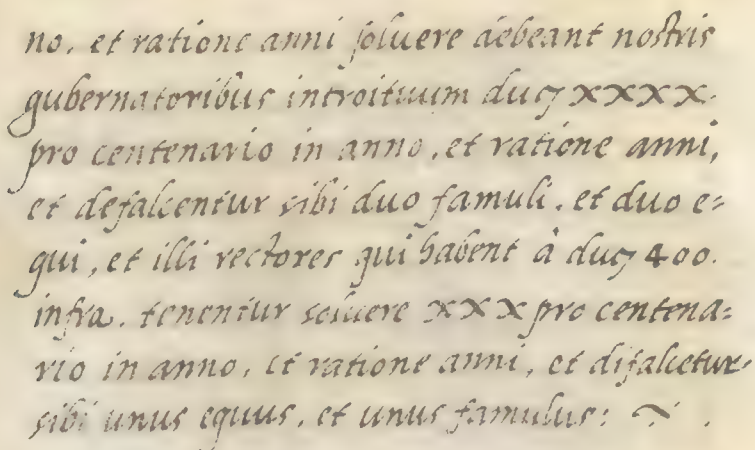 no, et ratione anni soluere debeant nostris
gubernatoribus introituum ducꝫ xxxx.
pro centenario in anno, et ratione anni,
et defalcentur sibi duo famuli, et duo e=
qui, et illi rectores qui habent à ducꝫ 400.
infra. tenentur soluere xxx pro centena=
rio in anno, et ratione anni, et difalcetur
sibi unus equus, et unus famulus: